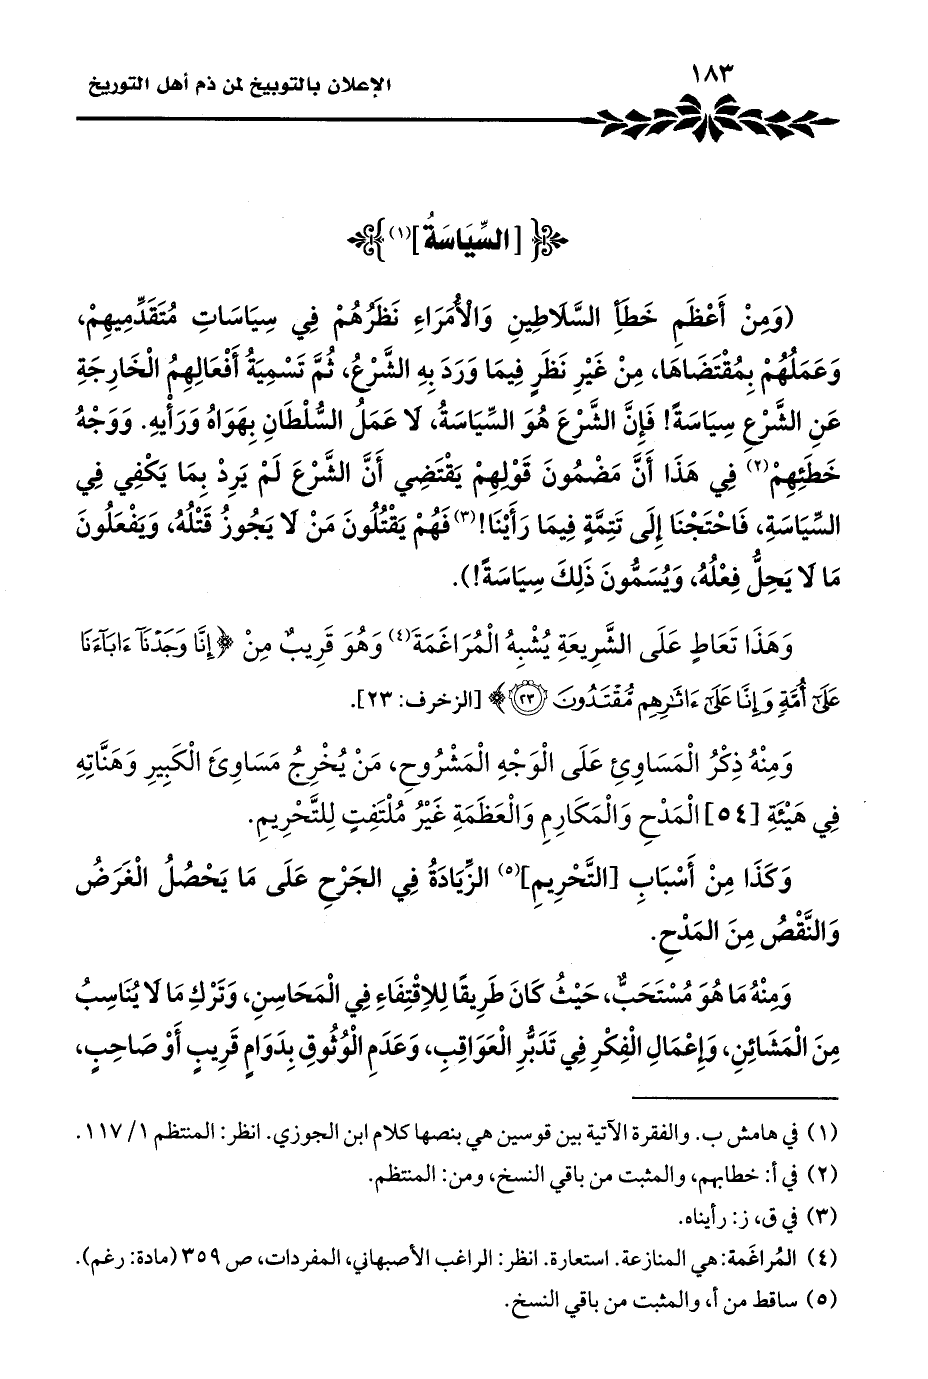 ١٨٣
الإعلان بالتوبيخ لمن ذم أهل التوريخ
[السِّيَاسَةُ](١)
(وَمِنْ أَعْظَمِ خَطَأِ السَّلَاطِينِ وَالْأُمَرَاءِ نَظَرُهُمْ فِي سِيَاسَاتِ مُتَقَدِّمِيهِمْ،
وَعَمَلُهُمْ بِمُقْتَضَاهَا، مِنْ غَيْرِ نَظَرٍ فِيمَا وَرَدَ بِهِ الشَّرْعُ، ثُمَّ تَسْمِيَةُ أَفْعَالِهِمُ الْخَارِجَةِ
عَنِ الشَّرْعِ سِيَاسَةً! فَإِنَّ الشَّرْعَ هُوَ السِّيَاسَةُ، لَا عَمَلُ السُّلْطَانِ بِهَوَاهُ وَرَأْيِهِ. وَوَجْهُ
خَطَئِهِمْ(٢) فِي هَذَا أَنَّ مَضْمُونَ قَوْلِهِمْ يَقْتَضِي أَنَّ الشَّرْعَ لَمْ يَرِدْ بِمَا يَكْفِي فِي
السِّيَاسَةِ، فَاحْتَجْنَا إِلَى تَتِمَّةٍ فِيمَا رَأَيْنَا!(٣) فَهُمْ يَقْتُلُونَ مَنْ لَا يَجُوزُ قَتْلُهُ، وَيَفْعَلُونَ
مَا لَا يَحِلُّ فِعْلُهُ، وَيُسَمُّونَ ذَلِكَ سِيَاسَةً!).
وَهَذَا تَعَاطٍ عَلَى الشَّرِيعَةِ يُشْبِهُ الْمُرَاغَمَةَ(٤) وَهُوَ قَرِيبٌ مِنْ ﴿إِنَّا وَجَدْنَآ ءَابَآءَنَا
عَلَىٰٓ أُمَّةٍ وَإِنَّا عَلَىٰٓ ءَاثَٰرِهِم مُّقْتَدُونَ ٢٣﴾ [الزخرف: ٢٣].
وَمِنْهُ ذِكْرُ الْمَسَاوِئِ عَلَى الْوَجْهِ الْمَشْرُوحِ، مَنْ يُخْرِجُ مَسَاوِئَ الْكَبِيرِ وَهَنَّاتِهِ
فِي هَيْئَةِ [٥٤] الْمَدْحِ وَالْمَكَارِمِ وَالْعَظَمَةِ غَيْرُ مُلْتَفِتٍ لِلتَّحْرِيمِ.
وَكَذَا مِنْ أَسْبَابِ [التَّحْرِيمِ](٥) الزِّيَادَةُ فِي الجَرْحِ عَلَى مَا يَحْصُلُ الْغَرَضُ
وَالنَّقْصُ مِنَ المَدْحِ.
وَمِنْهُ مَا هُوَ مُسْتَحَبٌّ، حَيْثُ كَانَ طَرِيقًا لِلاقْتِفَاءِ فِي الْمَحَاسِنِ، وَتَرْكِ مَا لَا يُنَاسِبُ
مِنَ الْمَشَائِنِ، وَإِعْمَالِ الْفِكْرِ فِي تَدَبُّرِ الْعَوَاقِبِ، وَعَدَمِ الْوُثُوقِ بِدَوَامِ قَرِيبٍ أَوْ صَاحِبٍ،
(١) في هامش ب. والفقرة الآتية بين قوسين هي بنصها كلام ابن الجوزي. انظر: المنتظم ١/ ١١٧.
(٢) في أ: خطابهم، والمثبت من باقي النسخ، ومن: المنتظم.
(٣) في ق، ز: رأيناه.
(٤) المُراغَمة: هي المنازعة. استعارة. انظر: الراغب الأصبهاني، المفردات، ص ٣٥٩ (مادة: رغم).
(٥) ساقط من أ، والمثبت من باقي النسخ.